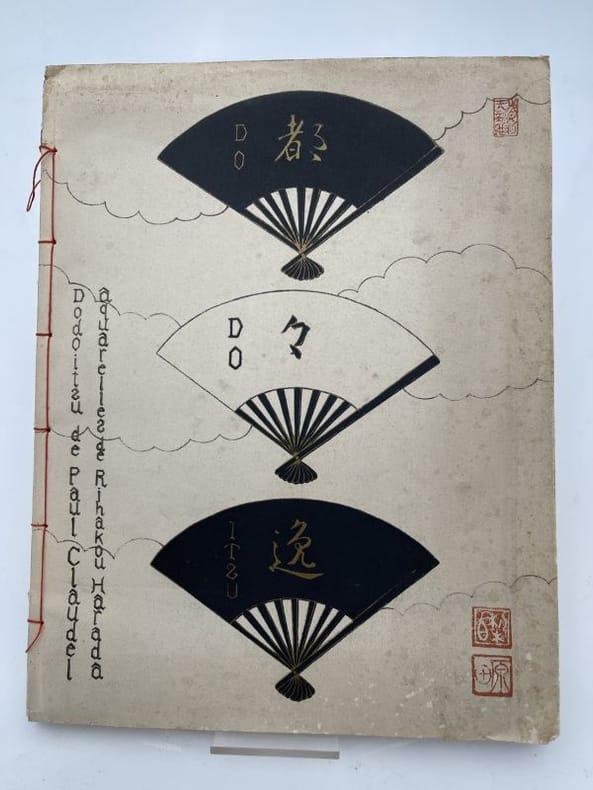 DO
都
DO
々
ITSU
逸
Dodoitsu de Paul Claudel
aquarelles de Rihakou Harada